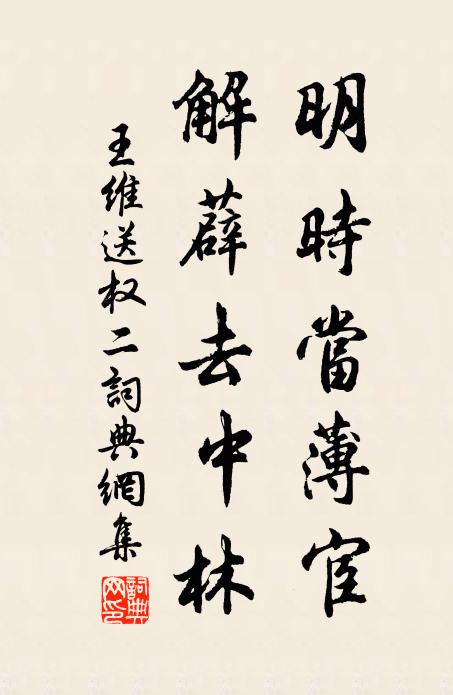 明時當薄宦
解薜去中林
王維送权二詞典網集
詞典网印